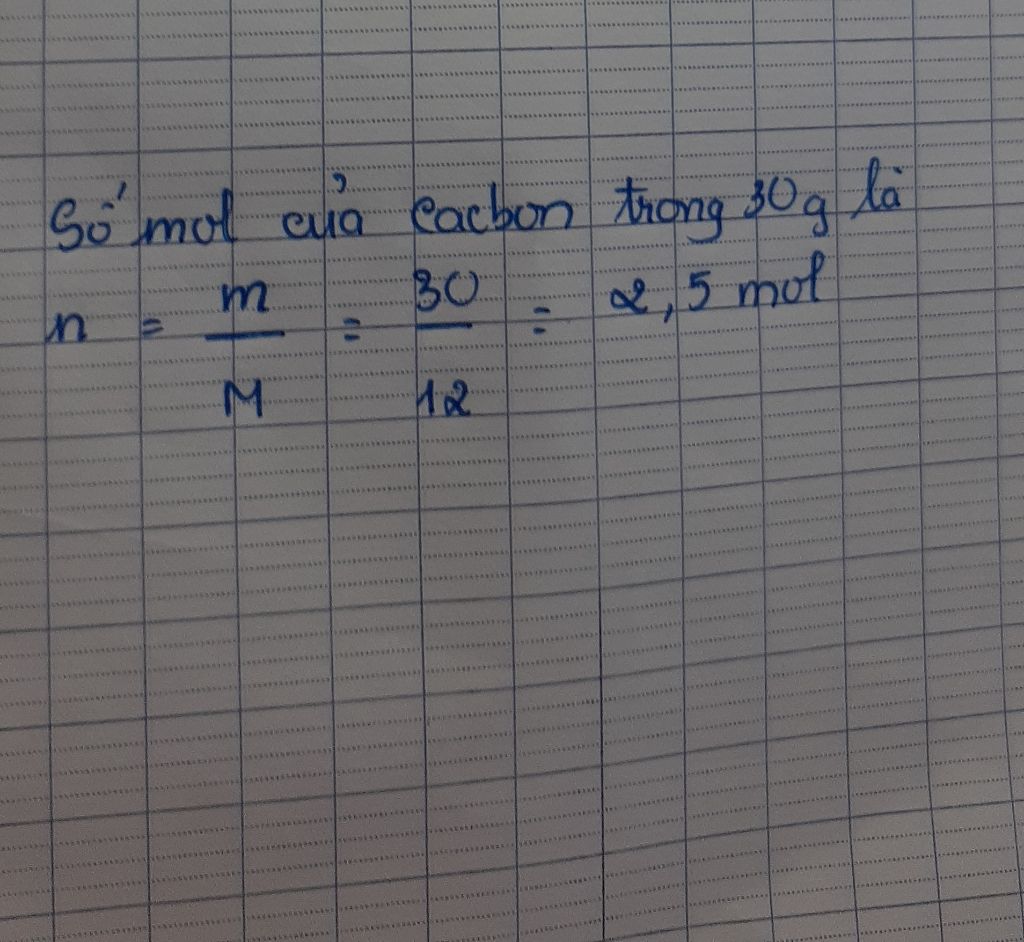 Số mol của cacbon trong 30g là
n = m/M = 30/12 = 2,5 mol